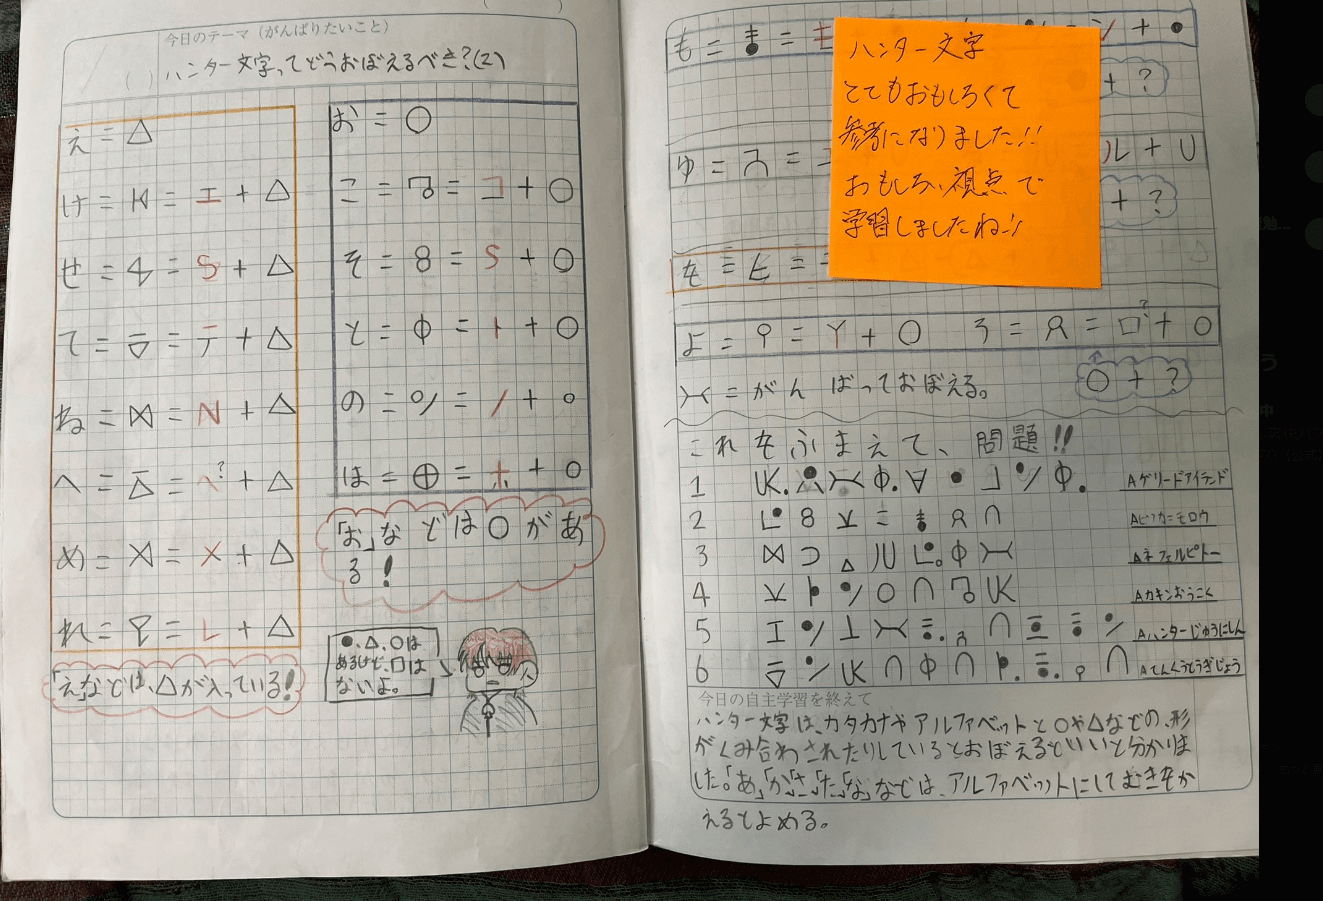 今日のテーマ（がんばりたいこと）
ハンター文字ってどうおぼえるべき?(2)
え=△
け= =エ+△
せ= =S+△
て= =テ+△
ね= =N+△
へ= =へ?+△
め= =メ+△
れ= =L+△
「え」などは、△が入っている!
お=○
こ= =コ+○
そ=8=S+○
と=Φ=ト+○
の= =ノ+○
ほ=⊕=ホ+○
「お」などは○がある!
●、△、○は
あるけど、□は
ないよ。
も= =モ
ン+●
+?
ゆ= =ユ
ル+U
+?
を= =
よ= =Y+○ ろ= =ロ?+○
○+?
=がんばっておぼえる。
ハンター文字
とてもおもしろくて
参考になりました!!
おもしろい視点で
学習しましたね!!
これをふまえて、問題!!
1 Aグリードアイランド
2 Aヒソカ=モロウ
3 Aネフェルピトー
4 Aカキンおうこく
5 Aハンターじゅうにしん
6 Aてんくうとうぎじょう
今日の自主学習を終えて
ハンター文字は、カタカナやアルファベットと○や△などの、形
がくみ合わされたりしているとおぼえるといいと分かりま
した。「あ」「か」「さ」「た」「な」などは、アルファベットにしてむきをか
えるとよめる。